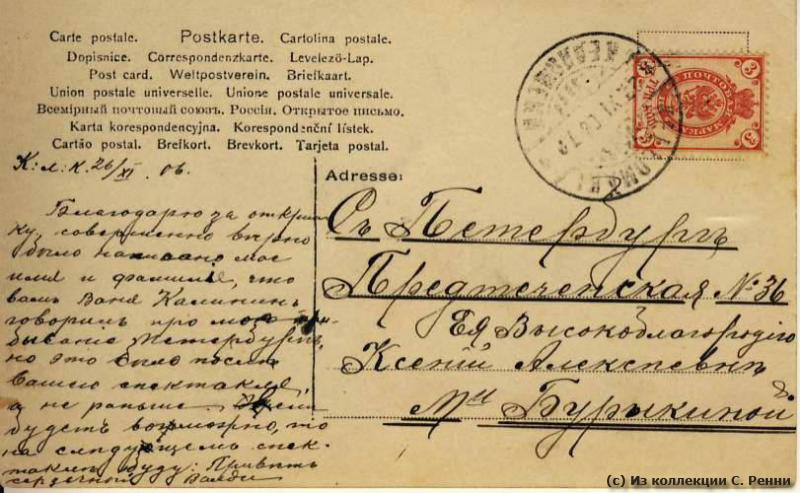 Carte postale. Postkarte. Cartolina postale.
Dopisnice. Correspondenzkarte. Levelezö-Lap.
Post card. Weltpostverein. Briefkaart.
Union postale universelle. Unione postale universale.
Всемірный почтовый союзъ. Россія. Открытое письмо.
Karta korespondencyjna. Korespondenční lístek.
Cartão postal. Brefkort. Brevkort. Tarjeta postal.
К. л. к. 26/XI 06.
Благодарю за открыт-
ку, совершенно вѣрно
было написано мое
имя и фамилія, что
вамъ Ваня Калининъ
говорилъ про мое при-
бываніе Петербургъ,
но это было послѣ
Вашего спектакля,
а не раньше.
будетъ возможно, то
на слѣдующемъ спек-
таклѣ буду. Привѣтъ
сердечный
Adresse:
Съ Петербургъ
Предтеченская № 36
Ея Высокоблагородію
Ксеніи Алексѣевнѣ
Бурыкиной
3
(c) Из коллекции С. Ренни